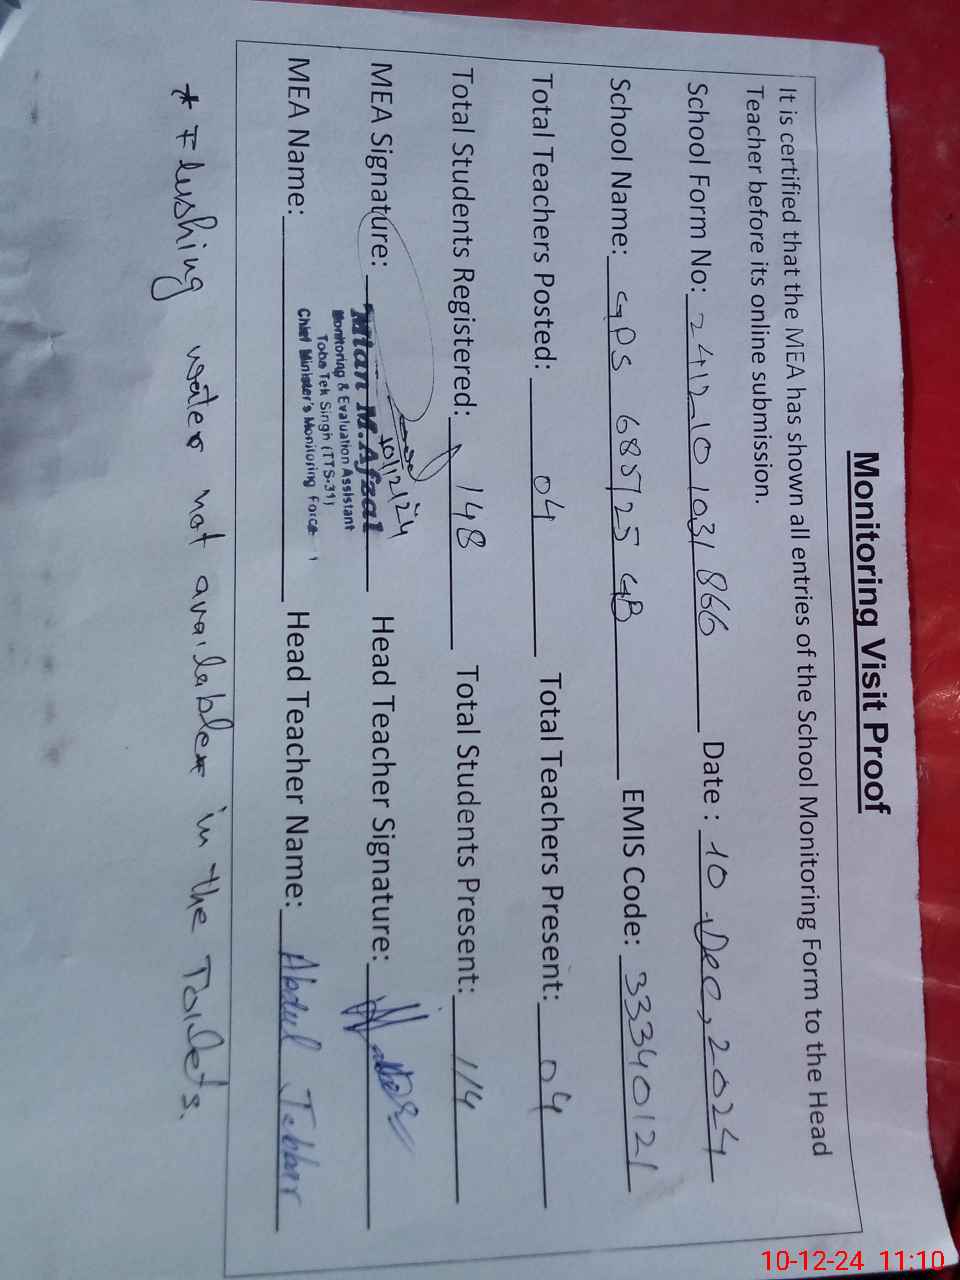 Monitoring Visit Proof
It is certified that the MEA has shown all entries of the School Monitoring Form to the Head
Teacher before its online submission.
School Form No: 241210 1031866 Date : 10 Dec, 2024
School Name: GPS 685/25 GB EMIS Code: 33340121
Total Teachers Posted: 04 Total Teachers Present: 04
Total Students Registered: 148 Total Students Present: 114
MEA Signature: 10/12/24 Head Teacher Signature:
Mian M.Afzal
Monitoring & Evaluation Assistant
Toba Tek Singh (TTS-31)
Chief Minister's Monitoring Force
MEA Name: Head Teacher Name: Abdul Jabbar
* Flushing water not available in the Toilets.
10-12-24 11:10